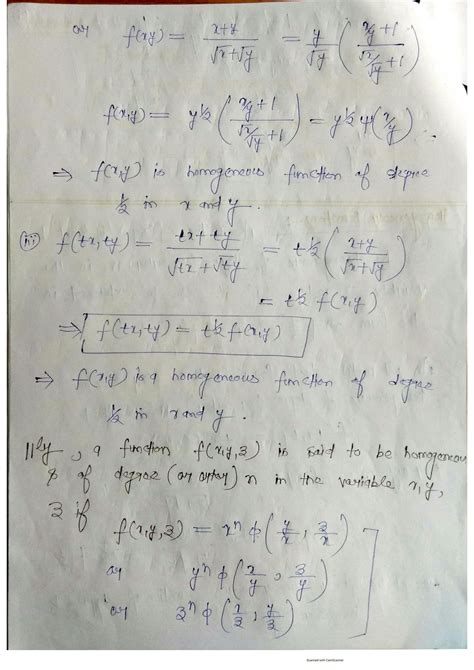 or f(x,y) = x+y / √x+√y = y/√y ( x/y + 1 / √x/√y + 1 )
f(x,y) = y^½ ( x/y + 1 / √x/√y + 1 ) = y^½ ψ(x/y).
⇒ f(x,y) is homogeneous function of degree
½ in x and y.
(iii) f(tx, ty) = tx + ty / √tx + √ty = t^½ ( x+y / √x+√y )
= t^½ f(x,y)
⇒ f(tx, ty) = t^½ f(x,y)
⇒ f(x,y) is a homogeneous function of degree
½ in x and y.
||ly, a function f(x,y,z) is said to be homogeneous
of degree (or order) n in the variable x, y,
z if
f(x,y,z) = x^n ϕ( y/x , z/x )
or y^n ϕ( x/y , z/y )
or z^n ϕ( x/z , y/z )
Scanned with CamScanner